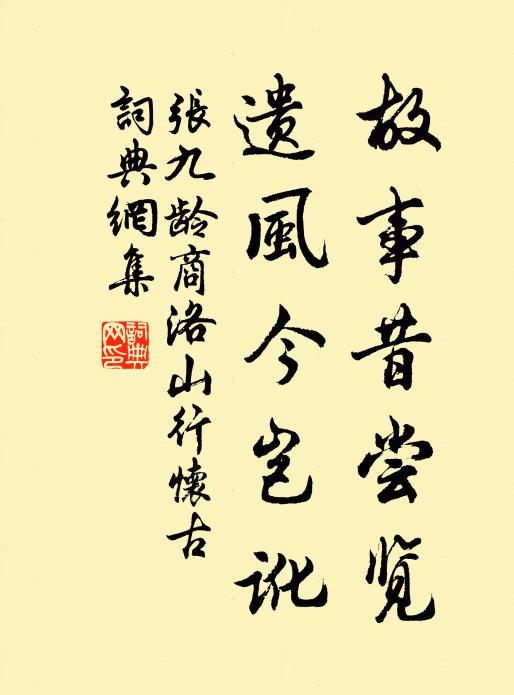 故事昔尝览
遗風今岂訛
張九龄商洛山行懷古
詞典網集
詞典網印